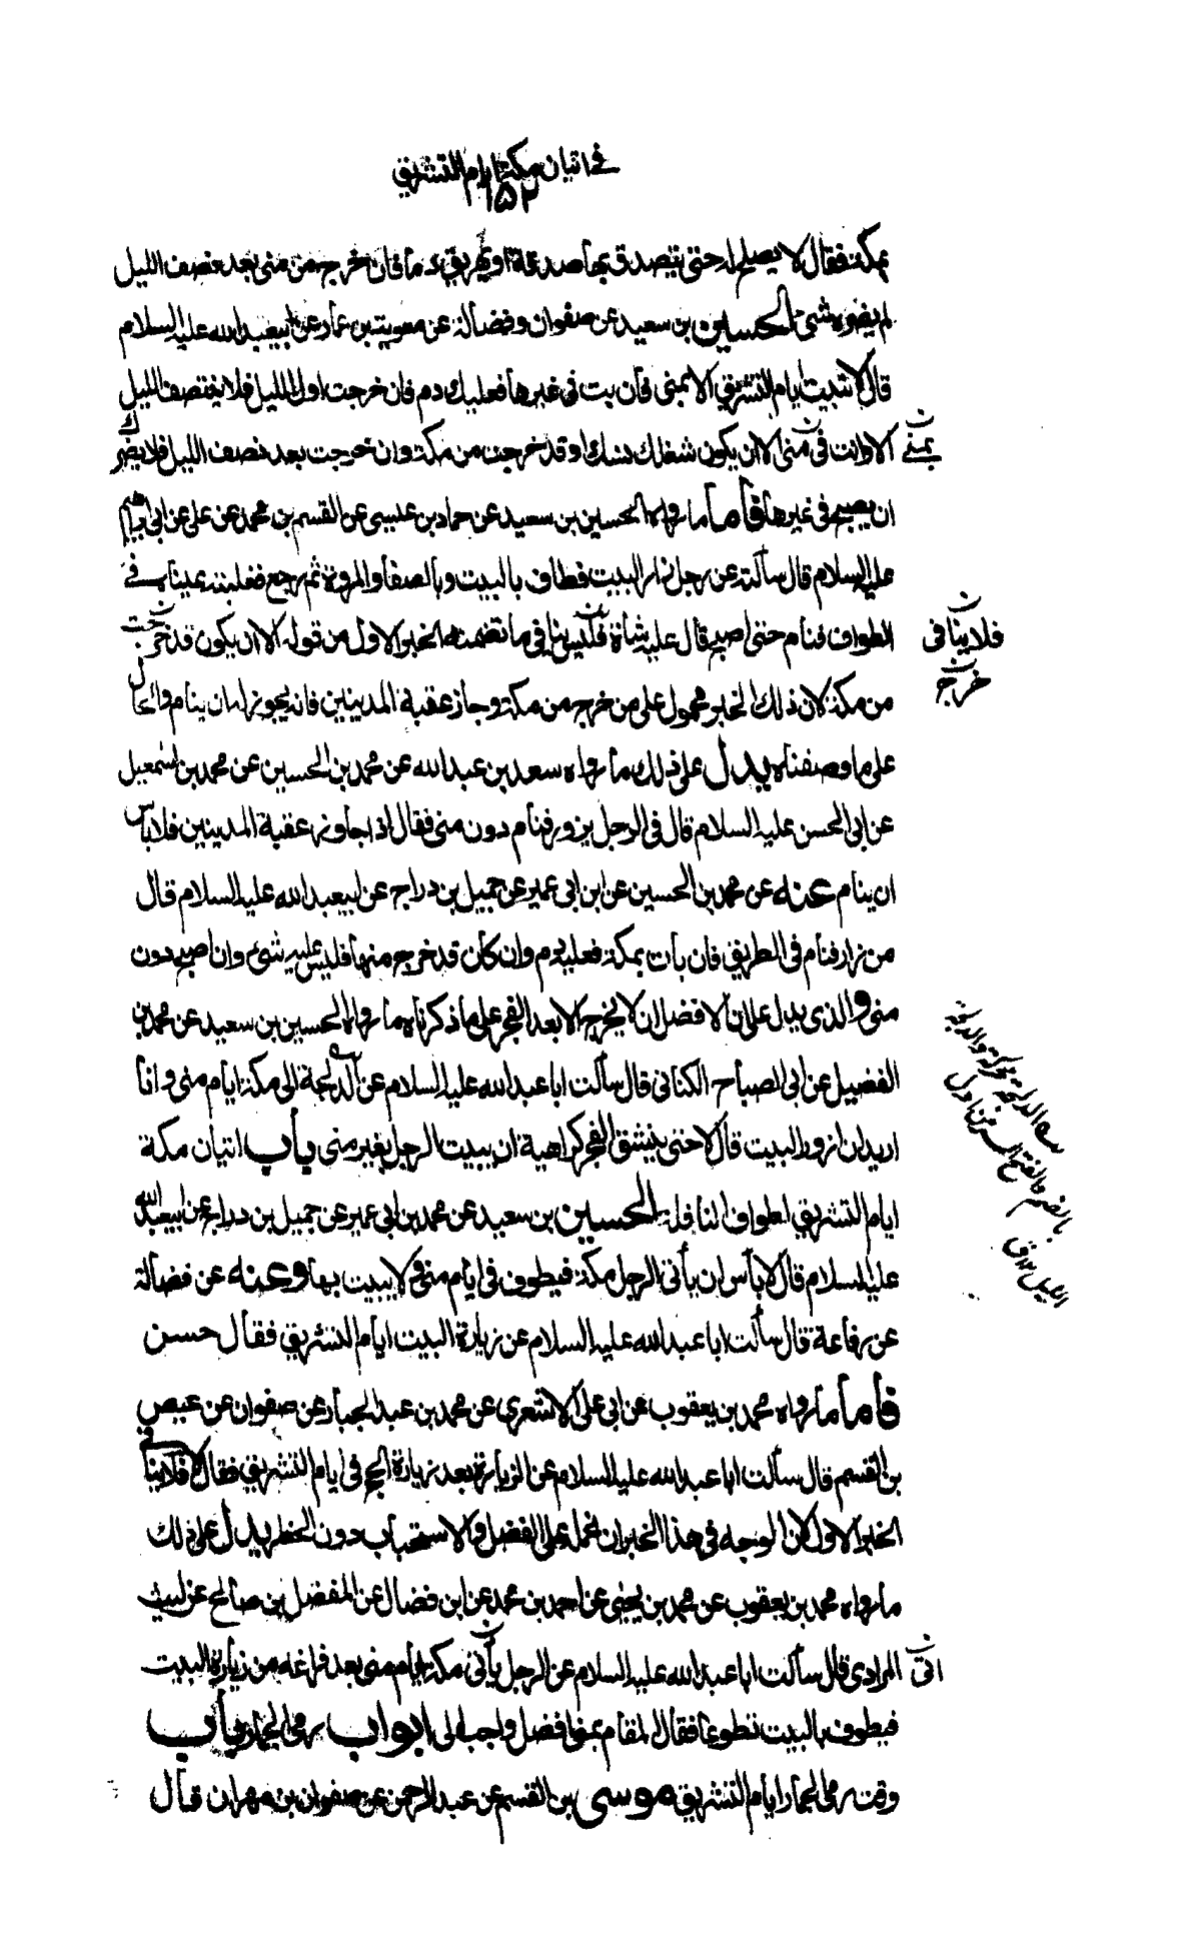 في اتيان مكة ايام التشريق
١٥٢
بمكة فقال لا يصلح له حتى يتصدق بها صدقة او يهريق دما فان خرج من منى بعد نصف الليل
لم يضره شئ الحسين بن سعيد عن صفوان وفضالة عن معوية بن عمار عن ابيعبد الله عليه السلام
قال لا تبيت ايام التشريق الا بمنى فان بت في غيرها فعليك دم فان خرجت اول الليل فلا ينتصف الليل
الا وانت في منى الا ان يكون شغلك نسك او قد خرجت من مكة وان خرجت بعد نصف الليل فلا يضرك
بمنى ن
ان يصبح في غيرها فأما ما رواه الحسين بن سعيد عن حماد بن عيسى عن القسم بن محمد عن علي عن ابي ابراهيم
عليه السلام قال سألته عن رجل زار البيت فطاف بالبيت وبالصفا والمروة ثم رجع فغلبته عيناه في
الطواف فنام حتى اصبح قال عليه شاة فليس ينافي ما تضمنه الخبر الاول من قوله الا ان يكون قد خرجت
فلا ينافى ن
خرج ن
من مكة لان ذلك الخبر محمول على من خرج من مكة وجاز عقبة المدينين فانه يجوز له ان ينام والحال
على ما وصفناه يدل على ذلك ما رواه سعد بن عبد الله عن محمد بن الحسين عن محمد بن اسمعيل
عن ابى الحسن عليه السلام قال في الرجل يزور فنام دون منى فقال اذا جاوز عقبة المدينين فلا بأس
ان ينام عنه عن محمد بن الحسين عن ابن ابى عمير عن جميل بن دراج عن ابيعبد الله عليه السلام قال
من زار فنام في الطريق فان بات بمكة فعليه دم وان كان قد خرج منها فليس عليه شئ وان اصبح دون
منى والذى يدل على ان الافضل ان لا يخرج الا بعد الفجر على ما ذكرناه ما رواه الحسين بن سعيد عن محمد بن
الفضيل عن ابى الصباح الكنانى قال سألت ابا عبد الله عليه السلام عن الدلجة الى مكة ايام منى وانا
اريد ان ازور البيت قال لا حتى ينشق الفجر كراهية ان يبيت الرجل بغير منى باب اتيان مكة
ايام التشريق لطواف النافلة الحسين بن سعيد عن محمد بن ابى عمير عن جميل بن دراج عن ابيعبد الله
عليه السلام قال لا بأس ان يأتى الرجل مكة فيطوف في ايام منى ولا يبيت بها وعنه عن فضالة
عن رفاعة قال سألت ابا عبد الله عليه السلام عن زيارة البيت ايام التشريق فقال حسن
فأما ما رواه محمد بن يعقوب عن ابى على الاشعري عن محمد بن عبد الجبار عن صفوان عن عيص
بن القسم قال سألت ابا عبد الله عليه السلام عن الزيارة بعد زيارة الحج في ايام التشريق فقال لا فلا ينافي
الخبر الاول لان الوجه في هذا الخبر ان نحمله على الفضل والاستحباب دون الحظر يدل على ذلك
ما رواه محمد بن يعقوب عن محمد بن يحيى عن احمد بن محمد عن ابن فضال عن المفضل بن صالح عن ليث
المرادى قال سألت ابا عبد الله عليه السلام عن الرجل يأتى مكة ايام منى بعد فراغه من زيارة البيت
اتى ن
فيطوف بالبيت تطوعا فقال المقام بمنى افضل واحب الى ابواب رمى الجمار باب
وقت رمى الجمار ايام التشريق موسى بن القسم عن عبد الرحمن عن صفوان بن مهران قال